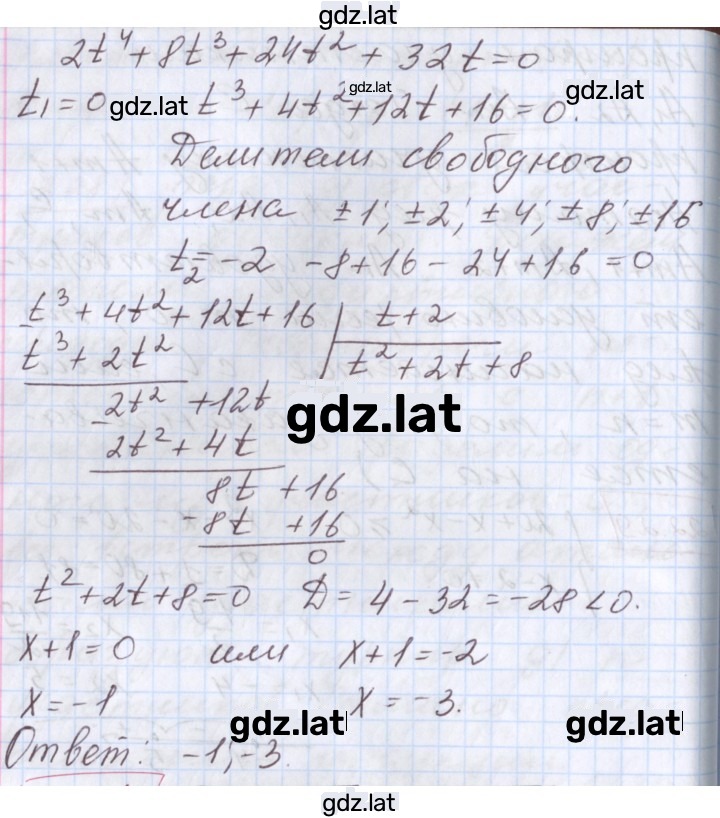 gdz.lat
2t⁴ + 8t³ + 24t² + 32t = 0
t₁ = 0 gdz.lat t³ + 4t² + 12t + 16 = 0. gdz.lat gdz.lat
Делители свободного
члена ±1; ±2; ±4; ±8; ±16
t₂ = -2 -8 + 16 - 24 + 16 = 0
t³ + 4t² + 12t + 16 | t + 2
t³ + 2t² t² + 2t + 8
2t² + 12t
gdz.lat
- 2t² + 4t
8t + 16
- 8t + 16
0
t² + 2t + 8 = 0 D = 4 - 32 = -28 < 0.
x + 1 = 0 или x + 1 = -2
x = -1 x = -3.
gdz.lat gdz.lat
Ответ: -1; -3.
gdz.lat